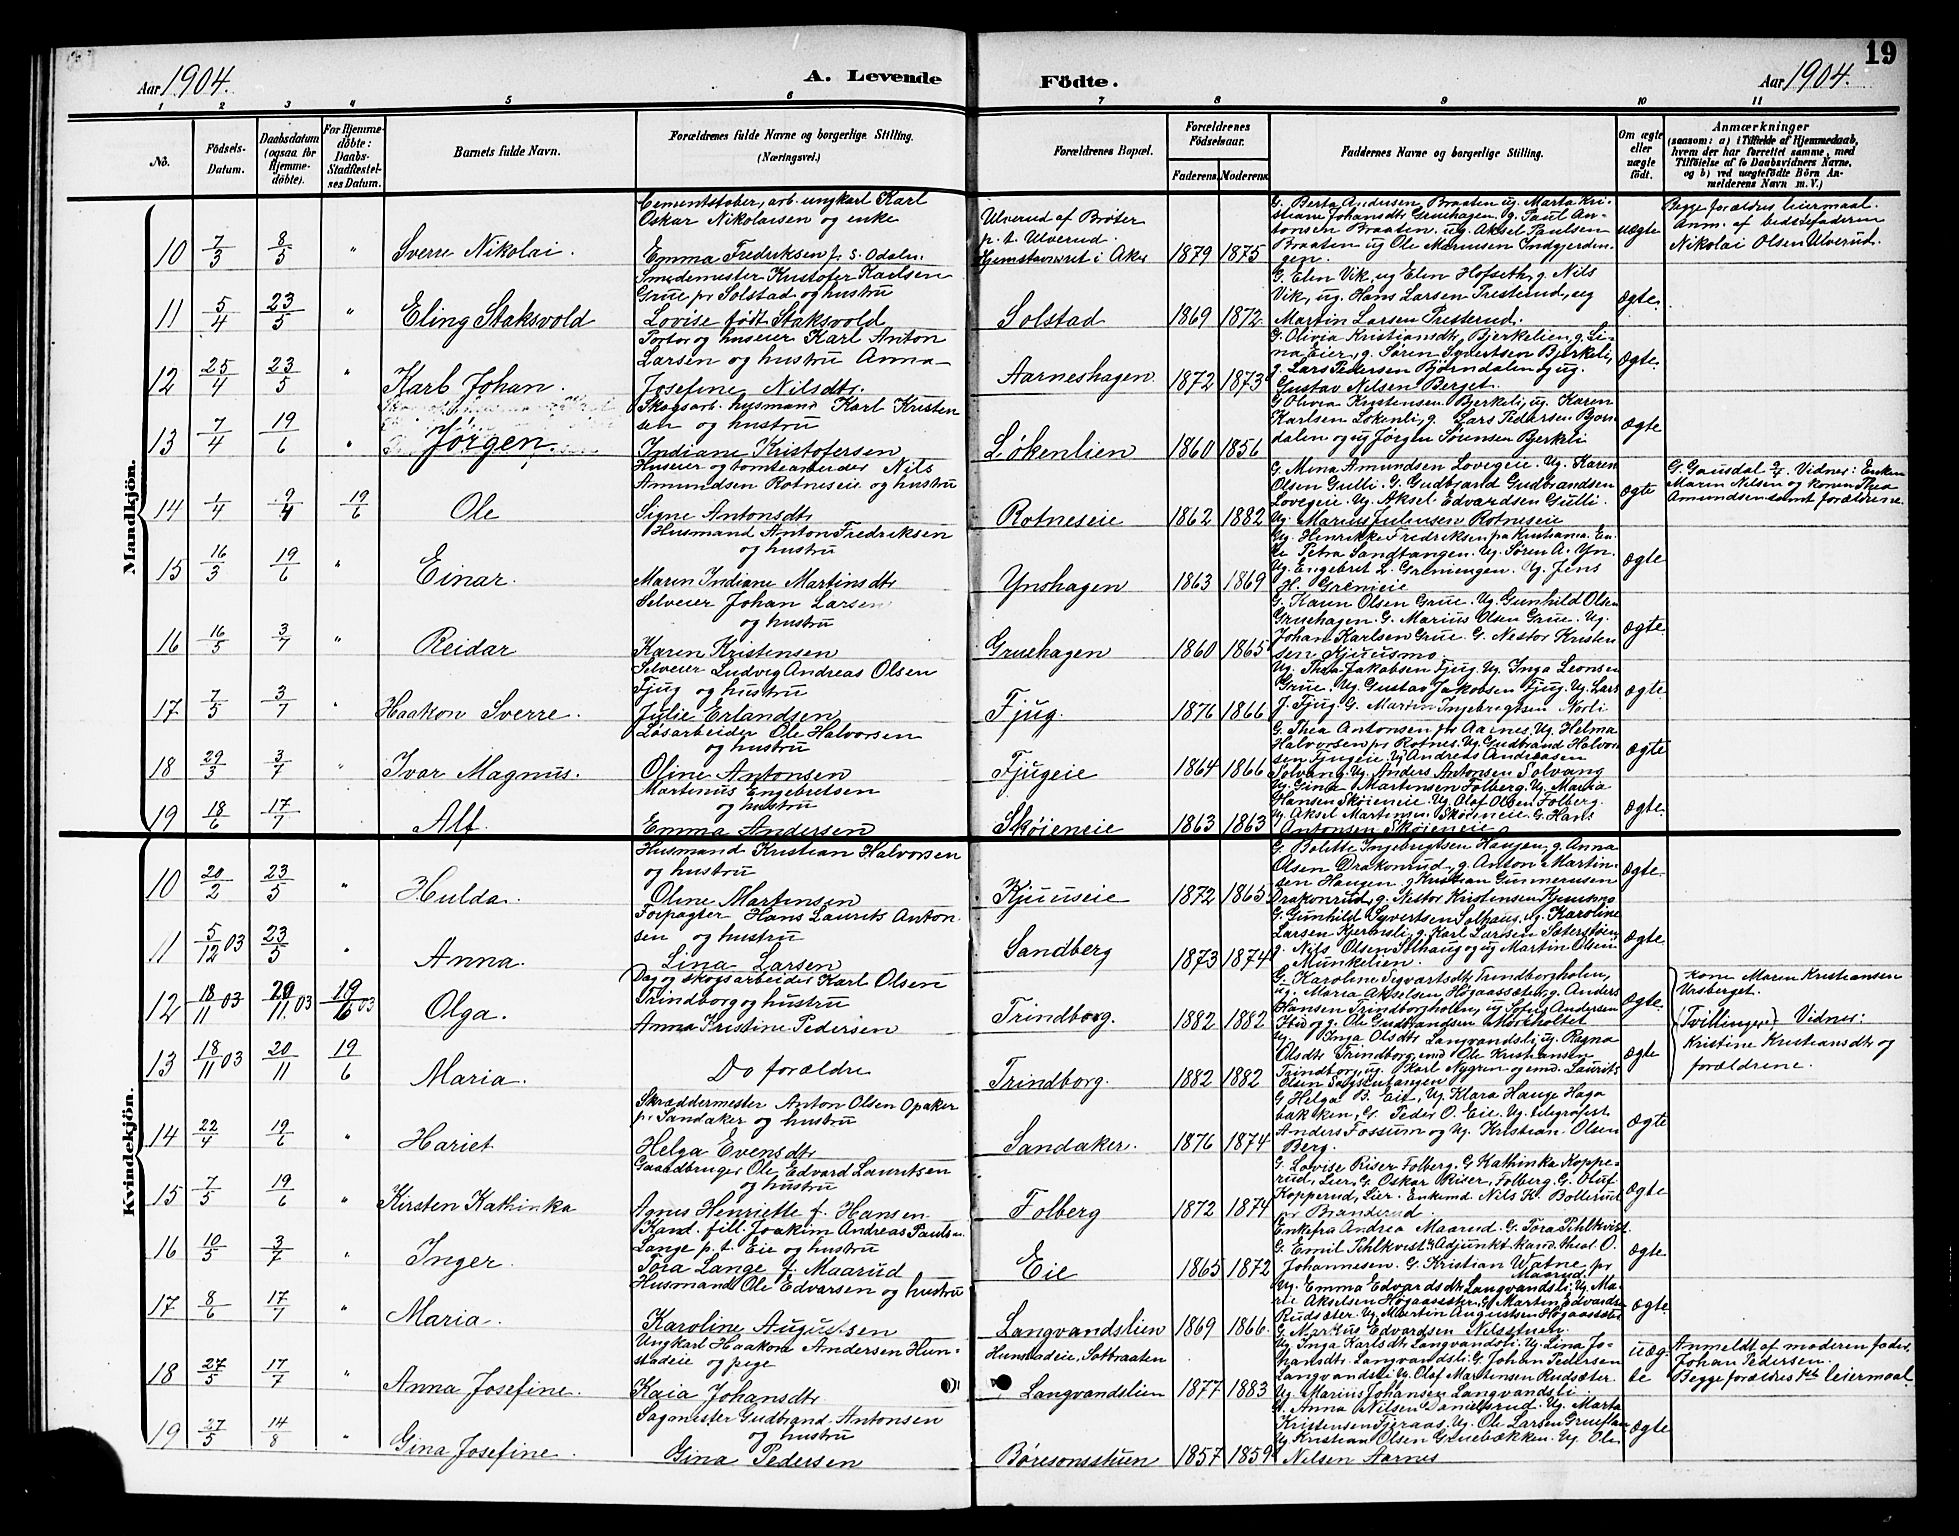 19
Aar 1904.
A. Levende
Födte.
Aar 1904.
1 2 3 4 5 6 7 8 9 10 11
No.
Födsels-Datum.
Daabsdatum (ogsaa for Hjemme-döbte).
For Hjemme-döbte: Daabs-Stadfæstel-ses Datum.
Barnets fulde Navn.
Forældrenes fulde Navne og borgerlige Stilling. (Næringsvei.)
Forældrenes Bopæl.
Forældrenes Födselsaar.
Faderens. Moderens.
Faddernes Navne og borgerlige Stilling.
Om ægte eller uægte födt.
Anmærkninger
(saasom: a) i Tilfælde af Hjemmedaab, hvem der har forrettet samme, med Tilföielse af to Daabsvidners Navne, og b) ved uægtefödte Börn An-melderens Navn m. V.)
Mandkjön.
10 7/3 8/5 " Sverre Nikolai.
Cementstøber, arb. ungkarl Karl
Oskar Nikolaisen og enke
Emma Fredriksen f. S. Odalen.
Ulverud af Brøter
p. t. Ulverud.
Hjemstavnsret i Aker
1879 1875
G. Berta Andersen Braaten ug. Marta Kri-
stiane Johansdtr Gruehagen. Ug. Paul An-
tonsen Braaten. ug. Aksel Paulsen
Braaten ug Ole Marinusen Indgjerdin-
gen.
uægte
Begge forældres leiermaal.
Anm. af bedstefaderen
Nikolai Olsen Ulverud.
11 5/4 23/5 " Eling Staksvold
Smedemester Kristofer Karlsen
Grue pr Solstad og hustru
Lovise født Staksvold
Solstad 1869 1872
G. Elen Vik, ug Elen Hofseth, g. Nils
Vik, ug. Hans Larsen Presterud, ug
Martin Larsen Presterud.
ægte.
12 25/4 23/5 " Karl Johan.
Portør og huseier Karl Anton
Larsen og hustru Anna
Josefine Nilsdtr.
Aarneshagen. 1872 1873
G. Olivia Kristiansdtr, Bjerkelien, g. Li-
na Eier, g. Søren Syvertsen Bjerkeli,
g. Lars Pedersen Bjørndalen og ug.
Gustav Nilsen Berget.
ægte.
13 7/4 19/6 " Jørgen.
Skogsarb. husmand Karl Kristen
sen og hustru
Indiane Kristofersen
Løkenlien 1860 1856
G Olivia Kristensen Bjerkeli, ug. Karen
Karlsen Løkenli, g Lars Pedersen Bjørn-
dalen og ug Jørgen Sørensen Bjerkeli
ægte
14 1/4 9/4 19/6 Ole
Huseier og tomtearbeider Nils
Amundsen Rotneseie og hustru
Signe Antonsdtr
Rotneseie 1862 1882
G. Mina Amundsen Lovegeie. Ug. Karen
Olsen Gulli. G. Gudbrand Gudbrandsen
Lovegeie. Ug Aksel Edvardsen Gulli.
Ug. Marius Juliusen Rotneseie
ægte
G. Gausdal 9/4. Vidner: Enken
Maren Nilsen og konen Thea
Amundsen samt forældrene.
15 16/3 19/6 " Einar.
Husmand Anton Fredriksen
og hustru
Maren Indiane Martinsdtr
Ynshagen 1863 1869
Ug. Henrikke Fredriksen fra Kristiania. En-
ke Petra Sandtangen. Ug. Søren A. Yn.
Ug. Engebret L. Greniengen. Ug. Jens
H. Greneieie
ægte
16 16/5 3/7 " Reidar
Selveier Johan Larsen
og hustru
Karen Kristensen
Gruehagen 1860 1865
G. Karen Olsen Grue. Ug. Gunhild Olsen
Gruehagen. G. Marius Olsen Grue. Ug.
Johan Karlsen Grue. G. Nestor Kristen
sen Kjuusmo.
ægte
17 7/5 3/7 " Haakon Sverre.
Selveier Ludvig Andreas Olsen
Fjug og hustru
Julie Erlandsen
Fjug. 1876 1866
Ug. Thea Jakobsen Fjug. Ug. Inga Leonsen
Grue. Ug. Gustav Jakobsen Fjug. Ug. Lars
J. Fjug G. Martin Ingebregtsen Nørli
ægte.
18 29/3 3/7 " Ivar Magnus.
Løsarbeider Ole Halvorsen
og hustru
Oline Antonsen
Fjugeie 1864 1866
G. Thea Antonsen fra Aarnes, Ug. Helma
Halvorsen pr Rotnes. Ug. Gudbrand Halvor
sen Fjugeie. Ug. Andreas Andreassen
Solvang. Ug. Anders Antonsen Solvang
ægte
19 18/6 17/7 Alf.
Martinus Engebretsen
og hustru
Emma Andersen
Skøieneie 1863 1863
Ug. Gina Martinsen Folberg. Ug. Maria
Hansen Skøieneie. Ug. Olaf Olsen Folberg.
Ug Aksel Martinsen Skøieneie. G. Hans
Antonsen Skøieneie
ægte.
Kvindekjön.
10 20/2 23/5 " Hulda.
Husmand Kristian Halvorsen
og hustru
Oline Martinsen
Kjuuseie 1872 1865
G. Bolette Ingebrigtsen Haugen, g. Anna
Olsen Drakonrud, g. Anton Martin-
sen Haugen, g Kristian Gunnerusen
Drakonrud, g. Nestor Kristensen Kjuusmo
ægte.
11 5/12 03 23/5 " Anna.
Forpagter Hans Laurits Anton-
sen og hustru
Lina Larsen
Sandberg 1873 1874
G. Gunhild Syvertsen Solhaug, ug. Karoline
Larsen Kjernsli, g. Karl Larsen Sæterstøen
g. Nils Olsen Solhaug og ug Martin Olsen
Munkelien.
ægte.
12 18/11 03 20/11 03 19/6 03 Olga.
Dag og skogsarbeider Karl Olsen
Trindborg og hustru
Anna Kristine Pedersen
Trindborg. 1882 1882
G. Karoline Sigvartsdtr, Trindborgholen,
ug. Maria Akselsen Høgaassæter, g. Anders
Hansen Trindborgholen, ug Sofus Andersen
Ibid og g. Ole Gudbrandsen Mørkholtet
ægte.
kone Maren Kristiansen
Ursberget.
(Tvillinger) Vidner:
Kristine Kristiansdtr og
forældrene.
13 18/11 03 20/11 19/6 Maria.
Do forældre
Trindborg. 1882 1882
Ug. Inga Olsdtr Langvandsli, ug. Ragna
Olsdtr Trindborg, emd Ole Kristiansen
Trindborg, ug. Karl Nygren og emd. Laurits
Olsen Sagstutangen
ægte
14 22/4 19/6 " Hariet
Skræddermester Anton Olsen Opaker
pr. Sandaker og hustru
Helga Evensdtr
Sandaker. 1876 1874
G Helga B. Eie, Ug Klara Hauge Haga
bakken, G. Peder O. Eie. Ug. telegrafist
Anders Fossum og Ug. Kristian Olsen
Berg.
ægte
15 7/5 19/6 " Kirsten Kathinka
Gaardbruger Ole Edvard Lauritsen
og hustru
Agnes Henriette f. Hansen
Folberg 1872 1874
G. Lovise Riser Folberg. G Kathinka Koppe-
rud, Lier, G. Oskar Riser, Folberg. G. Oluf
Kopperud, Lier. Enkemd Nils K. Bollerud
pr Branderud.
ægte
16 10/5 3/7 " Inger.
Kand. fill. Joakim Andreas Paulsen
Lange p. t. Eie og hustru
Tora Lange f. Maarud
Eie 1865 1872
Enkefru Andrea Maarud. G. Tora Pihlkvist.
G. Emil Pihlkvist Ug Adjunkt. kand. theol. O.
Johannesen. G. Kristian Watne pr
Maarud.
ægte
17 8/6 17/7 " Maria.
Husmand Ole Edvarsen og hustru
Karoline Augustsen
Langvandslien 1869 1866.
Ug. Emma Edvardsdtr Langvandsli. Ug. Ma-
rie Akselsen Høgaassæter. G Martin Edvardsen
Rudsæter. Ug. Martin Augustsen Høgaassæter
G. Markus Edvardsen Nilsstuen.
ægte
18 27/5 17/7 " Anna Josefine.
Ungkarl Haakon Andersen Hun-
stadeie og pige
Kaia Johansdtr
Hunstadeie, Sotbraaten
Langvandslien 1877 1883
Ug. Inga Karlsdtr Langvandsli. Ug. Lina Jo-
hansdtr Langvandsli. G. Johan Pedersen
Langvandsli Ug. Olaf Martinsen Rudsæter
Ug. Marius Johansen Langvandsli.
uæg-
te
Anmeldt af moderen fader,
Johan Pedersen.
Begge forældres leiermaal.
19 27/5 14/8 " Gina Josefine.
Sagmester Gudbrand Antonsen
og hustru
Gina Pedersen
Børesonsstuen 1857 1859
G. Anna Nilsen Danielsrud. Ug. Marta
Kristensen Fjeraas. Ug. Ole Larsen Grueflaten
Ug. Kristian Olsen Gruebækken. Ug. Ole
Nilsen Aarnes
ægte